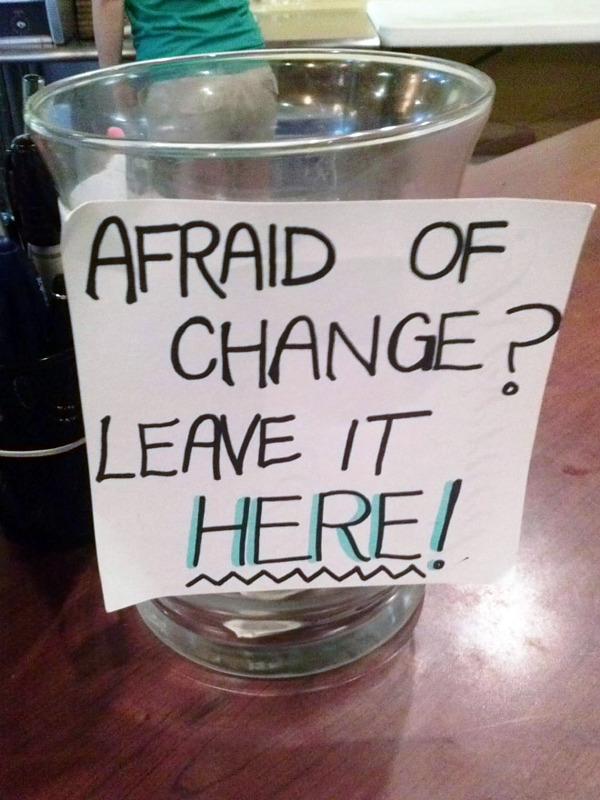 AFRAID OF
CHANGE?
LEAVE IT
HERE!